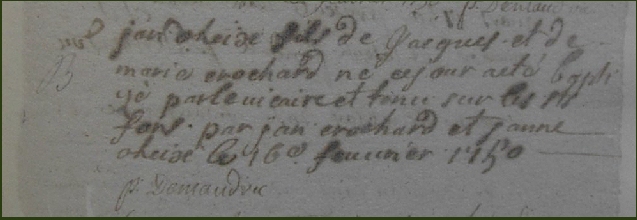 p. Demaudru
B jan oheix fils de Jacques et de
maria crochard né ce jour a eté bapti
yé par le vicaire et tenu sur les sts
fons par jan crochard et janne
oheix le 16e feuurier 1750
p. Demaudru